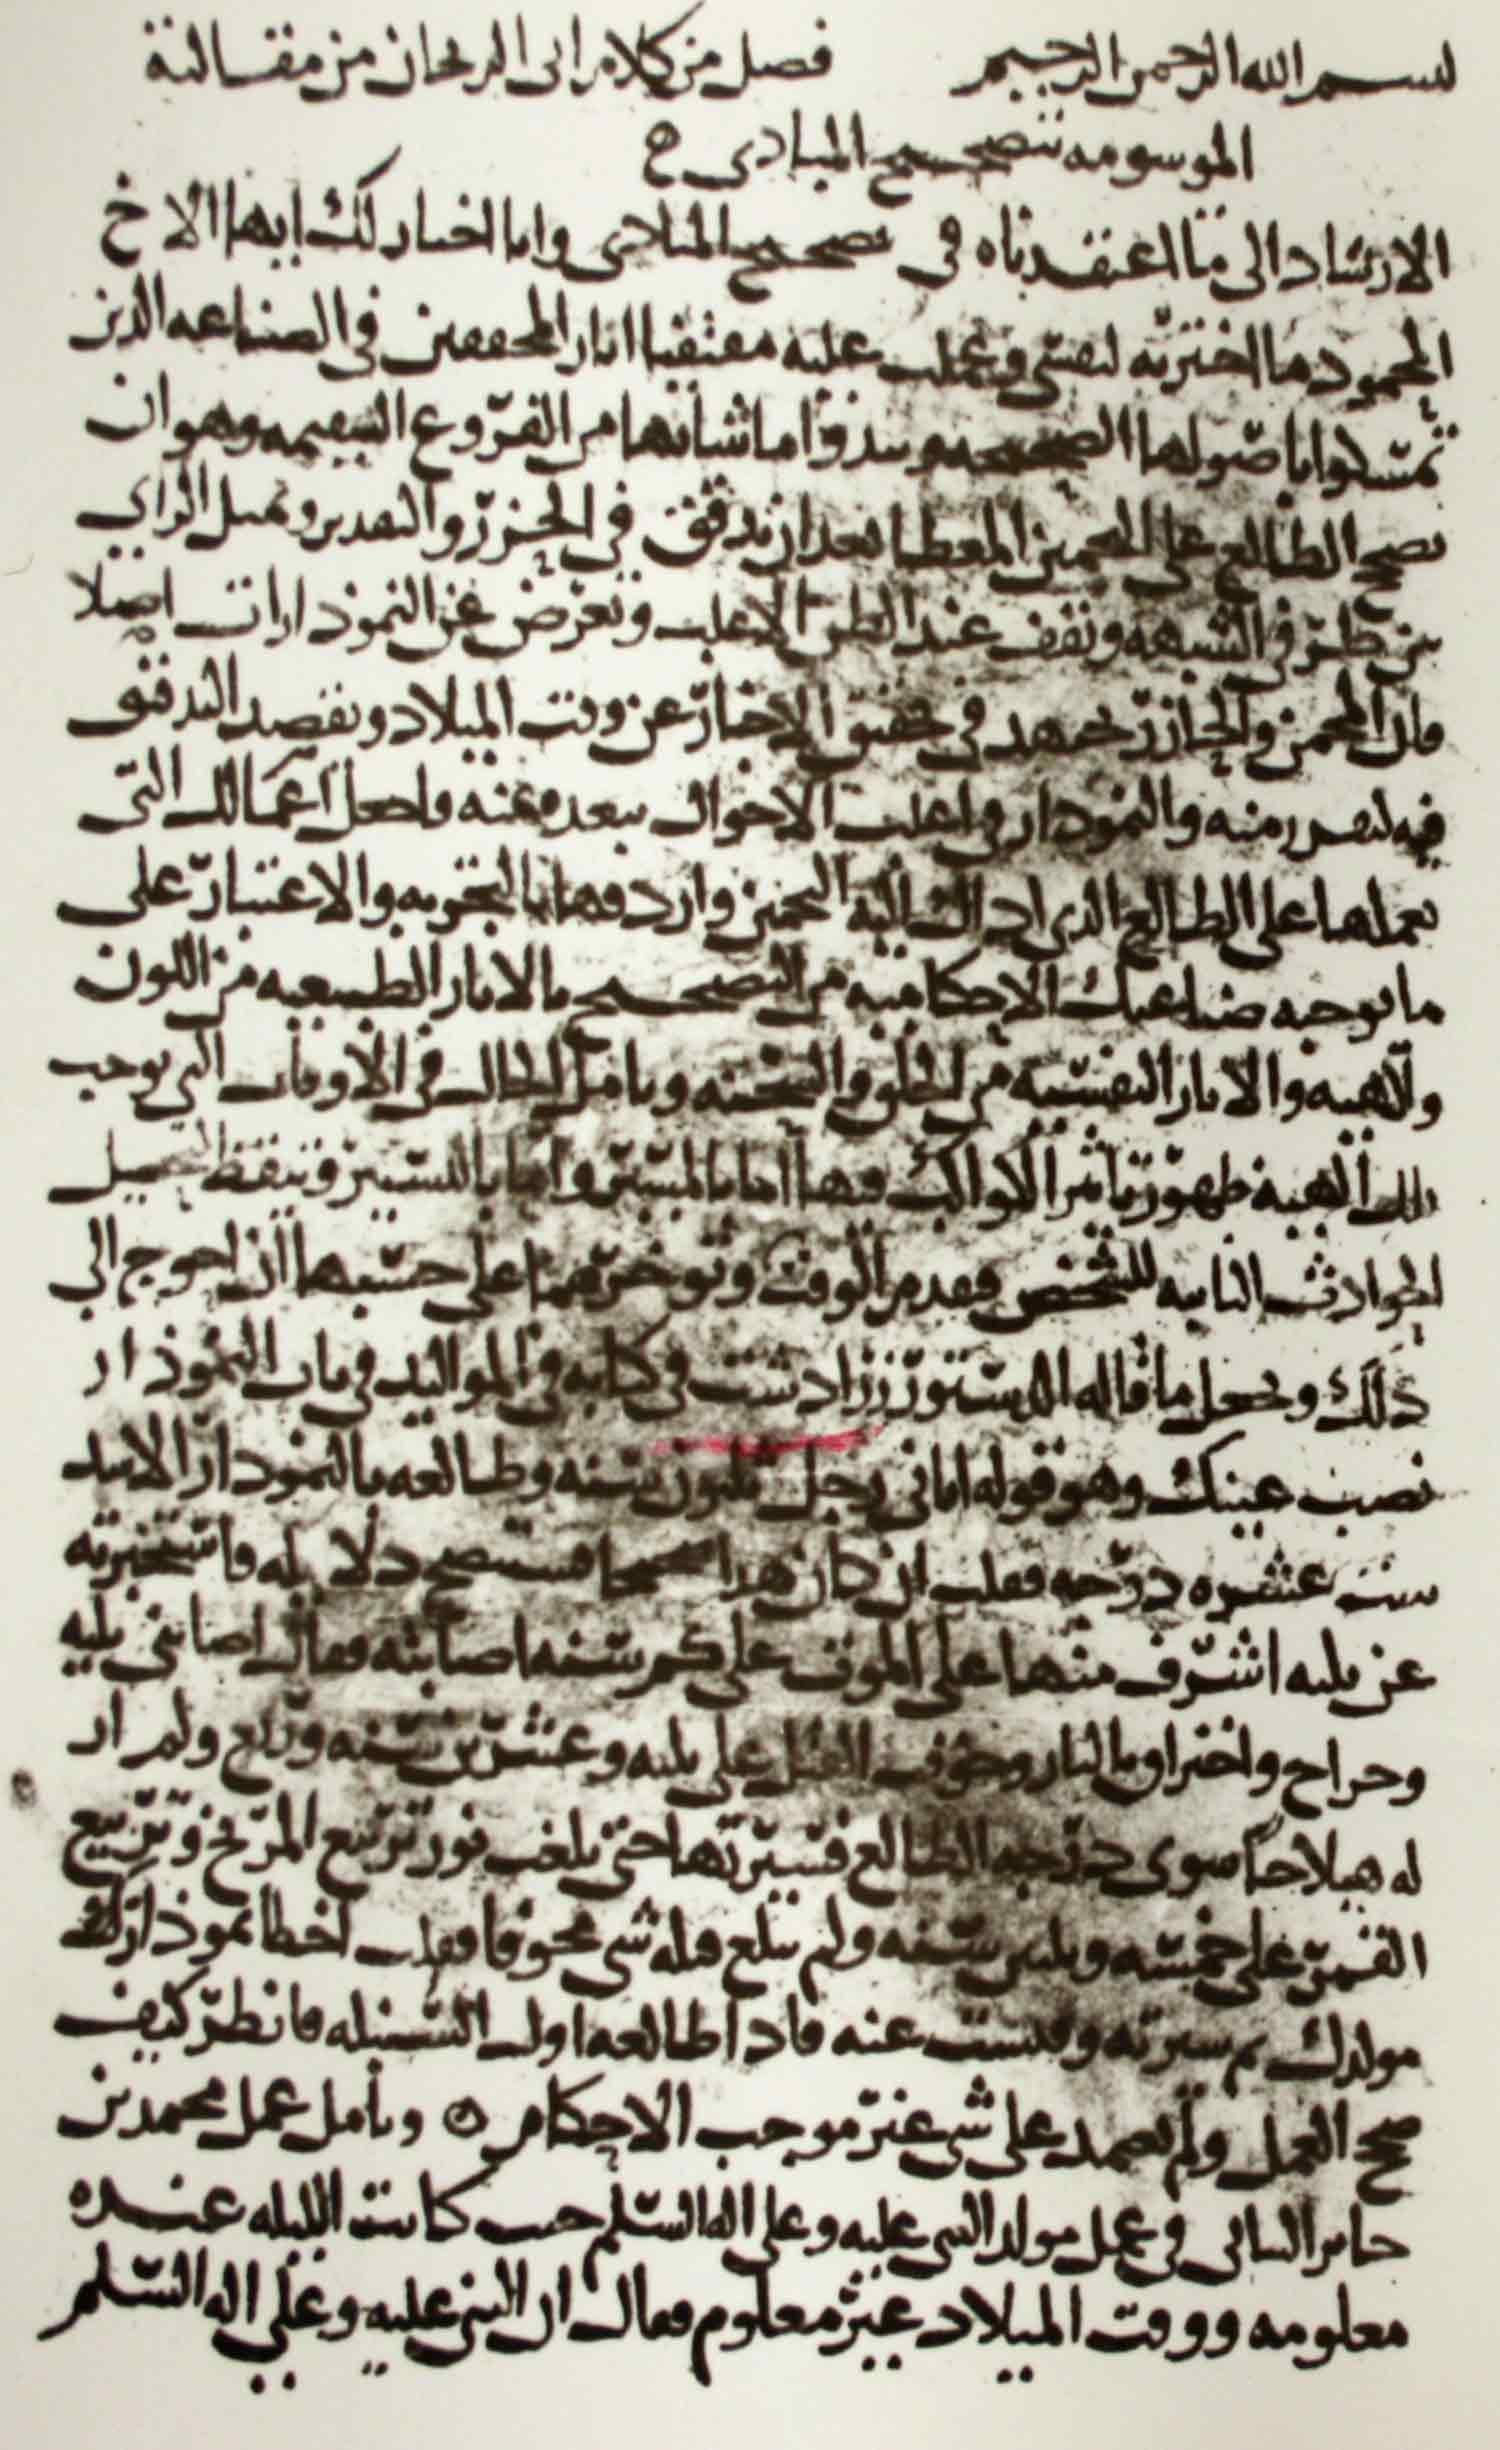 بسم الله الرحمن الرحيم فصل من كلام ابى الريحان من مقالته
الموسومه بتصحيح المبادى
الارشاد الى ما اعتقدناه فى تصحيح المبادى وانا اختار لك ايها الاخ
المحمود ما اخترته لنفسى وعملت عليه مقتفيا اثار المحققين فى الصناعه الذين
تمسكوا باصولها الصحيحه ونبذوا ما شانها من الفروع السقيمه وهو ان
تصحح الطالع على التخمين المعطا بعد ان تدقق فى الحزر والتقدير وتميل الراى
بين طرفى الشبهه وتقف عند الظن الاغلب وتعرض عن النموذارات اصلا
فان المخمن والحازر يجتهد فى تحقيق الاخبار عن وقت الميلاد ويقصد التدقيق
فيه ليقرب منه والنموذار فى اغلب الاحوال يبعده عنه فاجعل اعمالك التى
تعملها على الطالع الذى اداك اليه التخمين واردفها بالتجربه والاعتبار على
ما توجبه صناعتك الاحكاميه من التصحيح بالاثار الطبيعيه من اللون
والهيه والاثار النفسيه من الخلق والسحنه وتامل الحال فى الاوقات التى توجب
تلك الهيه ظهور تاثير الكواكب فيها اما بالمسير واما بالتسيير وتيقظ
لحوادث النابيه للشخص فقدم الوقت وتوخرهما على حسبها ان احوج الى
ذلك وتجعل ما قاله زرادشت فى كتابه فى المواليد فى باب النموذار
نصب عينك وهو قوله اتانى رجل بثلثون سنه وطالعه بالنموذار الاسد
ست عشره درجه فقلت ان كان هذا صحيحا فستصح دلايله فاستخبرته
عن بليه اشرف منها على الموت على كم سنه اصابته فقال اصابتنى بليه
وجراح واحتراق بالنار وخوف القتل على ثلثه وعشرين سنه وربع ولم ار
له هيلاجا سوى درجه الطالع فسيرتها حتى بلغت نور تربيع المريخ وتربيع
القمر على خمسه وثلثين سنه ولم تبلغ قبله شى مخوفا فقلت اخطا نموذارك
مولدك ثم سيرته وفتشت عنه فاذا طالعه اول السنبله فانظر كيف
صحح العمل ولم يعمد على شى غير موجب الاحكام ٥ وتامل عمل محمد بن
جابر البتانى فى عمل مولد النبى عليه وعلى اله السلم حيث كانت الليله عنده
معلومه ووقت الميلاد غير معلوم فقال ان النبى عليه وعلى اله السلم